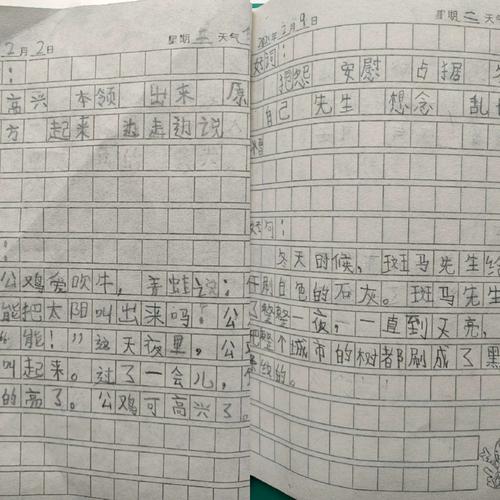 2月2日 星期二 天气
:
高兴 本领 出来 原
方 起来 边走边说
:
公鸡爱吹牛，青蛙说：
能把太阳叫出来吗？公
“能！”这天夜里，公
叫起来。过了一会儿，
的亮了。公鸡可高兴了
2月9日 星期二 天
好词：
抱怨 安慰 占据
自己 先生 想念 乱
好句：
冬天时候，斑马先生给
刷白色的石灰。斑马先生
了整整一夜，一直到天亮，
把整个城市的树都刷成了黑
线的。